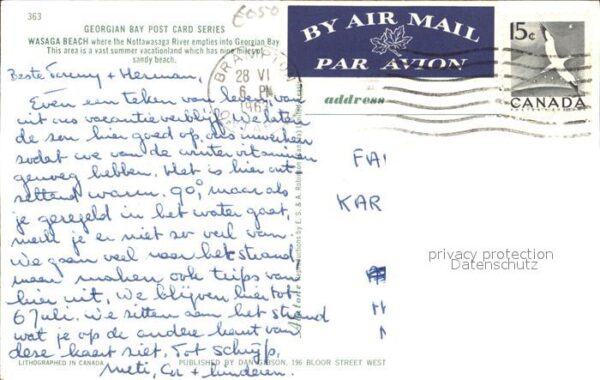 363
GEORGIAN BAY POST CARD SERIES
WASAGA BEACH where the Nottawasaga River empties into Georgian Bay.
This area is a vast summer vacationland which has nine miles of
sandy beach.
BY AIR MAIL
PAR AVION
15¢
CANADA
BRAMPTON
28 VI
6 PM
196
address
Beste + Herman,
Even een teken van leven, van
uit ons vacantieverblijf. We laten
de zon hier goed op ons inwerken
zodat we van de winter vitaminen
genoeg hebben. Het is hier ont
zettend warm. 90°, maar als
je geregeld in het water gaat,
merk je er niet zo veel van.
We gaan veel naar het strand
maar maken ook trips van
hier uit. We blijven hier tot
6 Juli. We zitten aan het strand
wat je op de andere kant van
deze kaart ziet. Tot schrijfs,
Cor + kinderen.
FA
KAR
privacy protection
Datenschutz
by E. S. & A. Robinson (Canada)
LITHOGRAPHED IN CANADA
PUBLISHED BY DAN GIBSON, 196 BLOOR STREET WEST